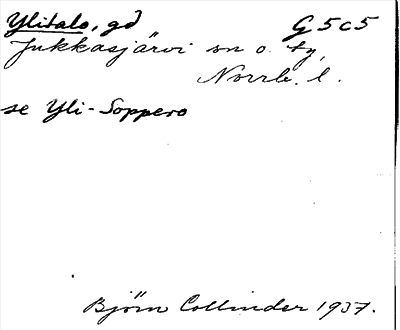 Ylitalo, gd G5c5
Jukkasjärvi sn o. ty,
Norrb. l.
se Yli-Soppero
Björn Collinder 1937.